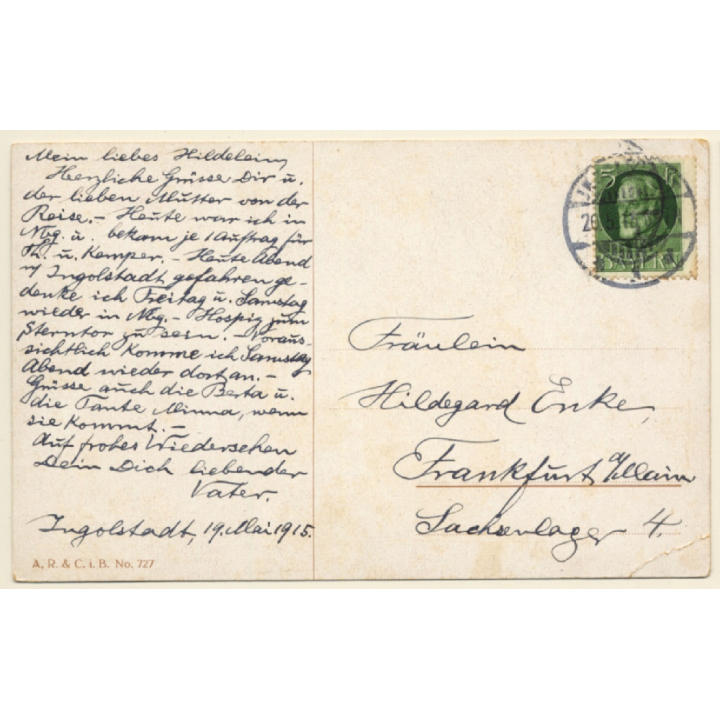 Mein liebes Hildelein,
Herzliche Grüsse Dir u.
der lieben Mutter von der
Reise.- Heute war ich in
Nbg. u. bekam je 1 Auftrag für
Th. u. Kemper. - Heute Abend
n/ Ingolstadt gefahren ge-
denke ich Freitag u. Samstag
wieder in Nbg. - Hospiz zum
Sterntor zu sein. - Voraus-
sichtlich komme ich Samstag
Abend wieder dort an. -
Grüsse auch die Berta u.
die Tante Minna, wenn
sie kommt. -
Auf frohes Wiedersehen
Dein Dich liebender
Vater.
Ingolstadt, 19. Mai 1915.
A. R. & C. i. B. No. 727
5
BAYERN
Fräulein
Hildegard Enke,
Frankfurt a/Main
Sachsenlager 4.